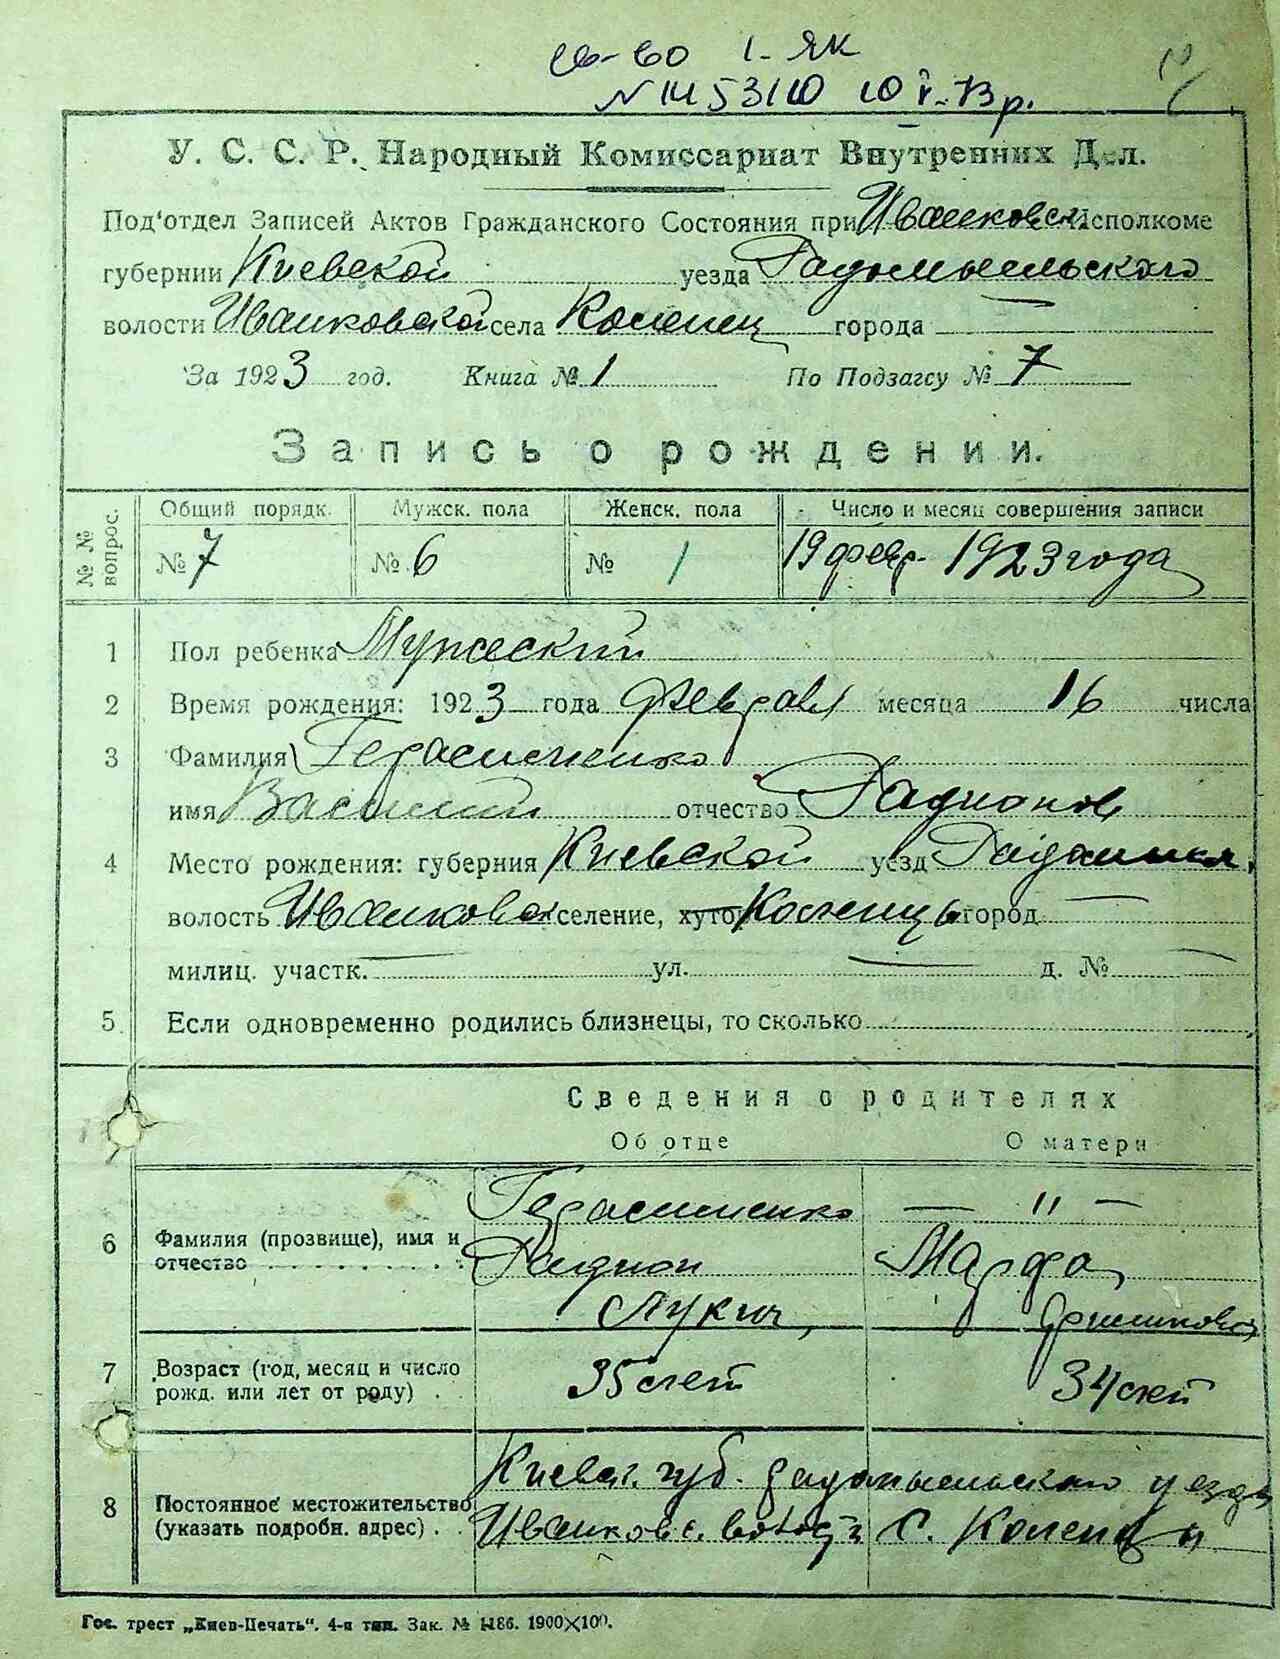 св-во I-ЯК
№ 1453110 10 V-73 р.
У. С. С. Р. Народный Комиссариат Внутренних Дел.
Под'отдел Записей Актов Гражданского Состояния при Иванковск. Исполкоме
губернии Киевской уезда Радомысльского
волости Иванковской села Коленец города —
За 1923 год. Книга № 1 По Подзагсу № 7
Запись о рождении.
№ № вопрос. Общий порядк. Мужск. пола Женск. пола Число и месяц совершения записи
№ 7 № 6 № / 19 февр. 1923 года
1 Пол ребенка Мужеский
2 Время рождения: 1923 года Февраля месяца 16 числа
3 Фамилия Герасименко
имя Василий отчество Радионов
4 Место рождения: губерния Киевской уезд Радомысл.
волость Иванковск селение, хутор Коленцы город —
милиц. участк. — ул. — д. № —
5 Если одновременно родились близнецы, то сколько
Сведения о родителях
Об отце О матери
Герасименко — " —
6 Фамилия (прозвище), имя и
отчество Радион Марфа
Лукич,
7 Возраст (год, месяц и число
рожд. или лет от роду) 35 лет 34 лет
Киевск. губ. Радомысльского уезда
8 Постоянное местожительство
(указать подробн. адрес) Иванковс. волость с. Коленцы
Гос. трест „Киев-Печать". 4-я тип. Зак. № 1186. 1900×100.